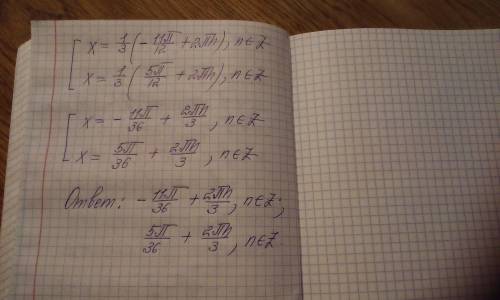 x = 1/3 (-11π/12 + 2πn), n∈Z
x = 1/3 (5π/12 + 2πn), n∈Z
x = -11π/36 + 2πn/3, n∈Z
x = 5π/36 + 2πn/3, n∈Z
Ответ: -11π/36 + 2πn/3, n∈Z;
5π/36 + 2πn/3, n∈Z